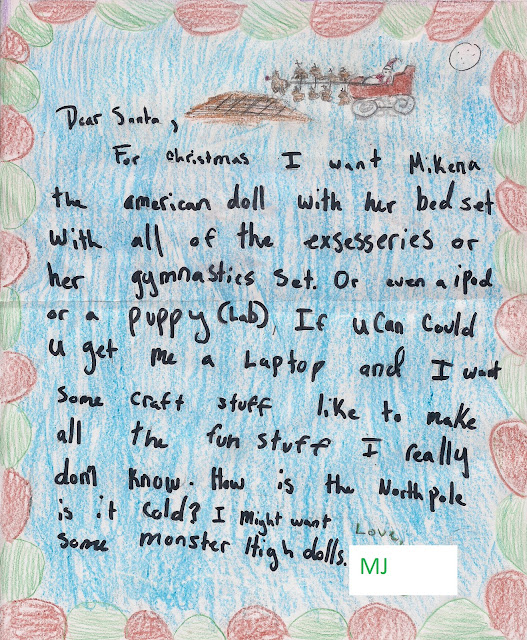 Dear Santa,
For christmas I want Mikena
the american doll with her bed set
with all of the exsesseries or
her gymnastics set. Or even a ipod
or a puppy (Lab), If u Can Could
u get me a Laptop and I want
some craft stuff like to make
all the fun stuff I really
don't know. How is the North pole
is it Cold? I might want
some monster High dolls.
Love,
MJ